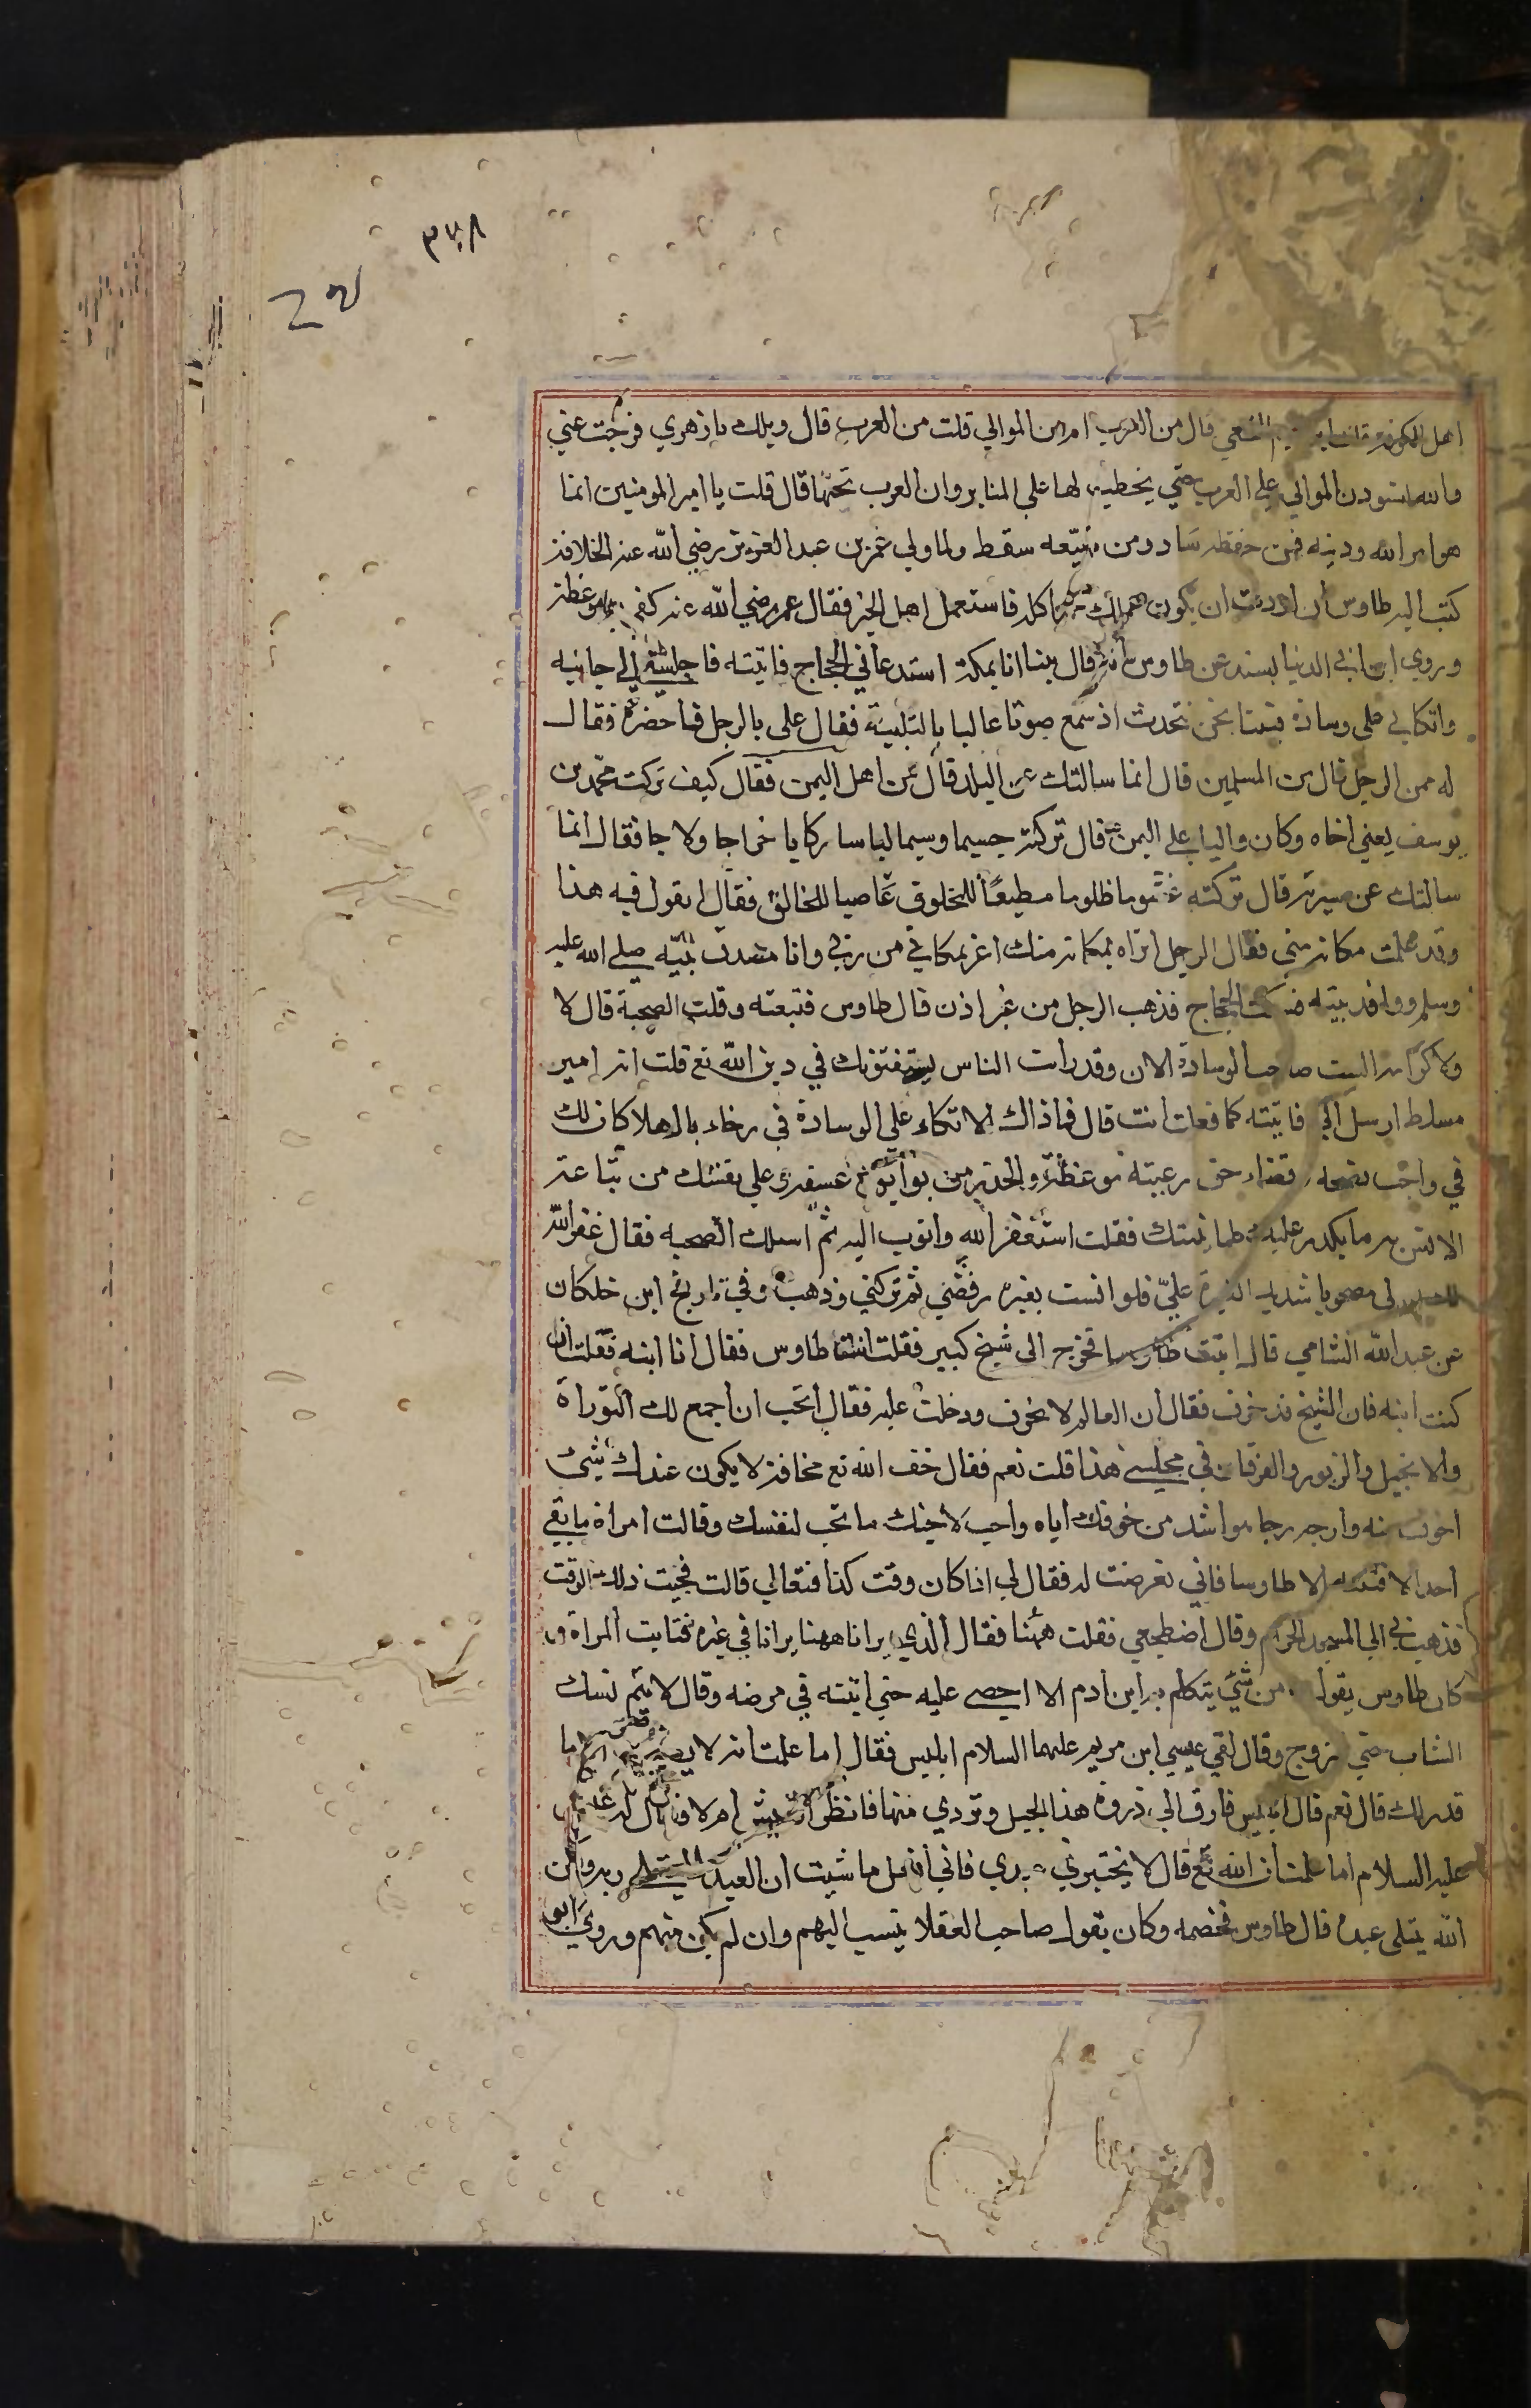 ٣٧٨
اهل الكوفة قلت ابراهيم النخعي قال من العرب ام من الموالي قلت من العرب قال ويلك يا زهري فرجت عني
والله لتسودن الموالي على العرب حتى يخطب لها على المنابر وان العرب تحتها قال قلت يا امير المومنين انما
هو امر الله ودينه فمن حفظه ساد ومن ضيعه سقط ولما ولي عمر بن عبد العزيز رضي الله عنه الخلافة
كتب اليه طاوس ان اردت ان يكون عملك خيرا كله فاستعمل اهل الخير فقال عمر رضي الله عنه كفى بها موعظة
وروي ابن ابي الدنيا بسنده عن طاوس انه قال بينا انا بمكة استدعاني الحجاج فاتيته فاجلسني الى جانبه
واتكاني على وسادة فبينا نحن نتحدث اذ سمع صوتا عاليا بالتلبية فقال علي بالرجل فاحضره فقال
له ممن الرجل قال من المسلمين قال انما سالتك عن البلد قال من اهل اليمن فقال كيف تركت محمد بن
يوسف يعني اخاه وكان واليا على اليمن قال تركته جسيما وسيما لباسا ركابا خراجا ولاجا فقال انما
سالتك عن سيرته قال تركته غشوما ظلوما مطيعا للمخلوق عاصيا للخالق فقال اتقول فيه هذا
وقد علمت مكانه مني فقال الرجل اتراه بمكانه منك اعز بمكاني من ربي وانا مصدق نبيه صلى الله عليه
وسلم ووافد بيته فسكت الحجاج فذهب الرجل من غير اذن قال طاوس فتبعته وقلت الصحبة قال لا
ولا كرامة الست صاحب الوسادة الان وقد رات الناس يستفتونك في دين الله تع قلت انه امير
مسلط ارسل الي فاتيته كما فعلت انت قال فما ذاك الاتكاء على الوسادة في رخاء بال هلا كان لك
في واجب نصحه وقضاء حق رعيته موعظة والحذر من بوائق عسفه وعلى نفسك من تباعة
الانس به ما يكدر عليك طمانينتك فقلت استغفر الله واتوب اليه ثم اسلك الصحبة فقال غفر الله
لك ان لي مصحوبا شديد الغيرة علي فلو انست بغيره رفضني ثم تركني وذهب وفي تاريخ ابن خلكان
عن عبد الله الشامي قال اتيت طاوسا فخرج الى شيخ كبير فقلت انت طاوس فقال انا ابنه فقلت ان
كنت ابنه فان الشيخ قد خرف فقال ان العالم لا يخرف ودخلت عليه فقال اتحب ان اجمع لك التوراة
والانجيل والزبور والفرقان في مجلسي هذا قلت نعم فقال خف الله تع مخافة لا يكون عندك شيئ
اخوف منه وارجه رجا هو اشد من خوفك اياه واحب لاخيك ما تحب لنفسك وقالت امراة ما بقي
احد الا فتنته الا طاوسا فاني تعرضت له فقال لي اذا كان وقت كذا فتعالي قالت فجيت ذلك الوقت
فذهب بي الى المسجد الحرام وقال اضطجعي فقلت ههنا فقال الذي يرانا ههنا يرانا في غيره فتابت المراة و
كان طاوس يقول ما من شيئ يتكلم به ابن ادم الا احصي عليه حتى انينه في مرضه وقال لا يتم نسك
الشاب حتى يزوج وقال لقي عيسي ابن مريم عليهما السلام ابليس فقال اما علمت انه لا يصيبك الا ما
قدر لك قال نعم قال ابليس فارق الى ذروة هذا الجبل وتردي منها فانظر اتعيش ام لا فقال له عيسى
عليه السلام اما علمت ان الله تع قال لا يختبرني عبدي فاني افعل ما شيت ان العبد لا يبتلي ربه ولكن
الله يبتلى عبده قال طاوس فخصمه وكان يقول صاحب العقلا ينسب اليهم وان لم يكن منهم وروي ابو